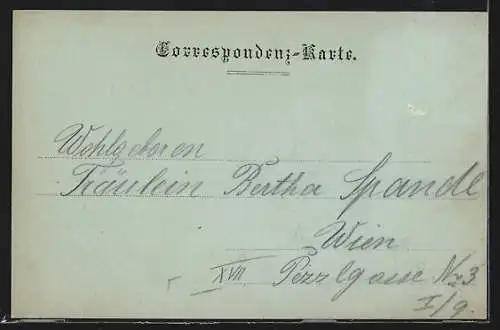 Correspondenz-Karte.
Wohlgeboren
Fräulein Bertha Spandl
Wien
XVII Pezzlgasse No 3
I/9.